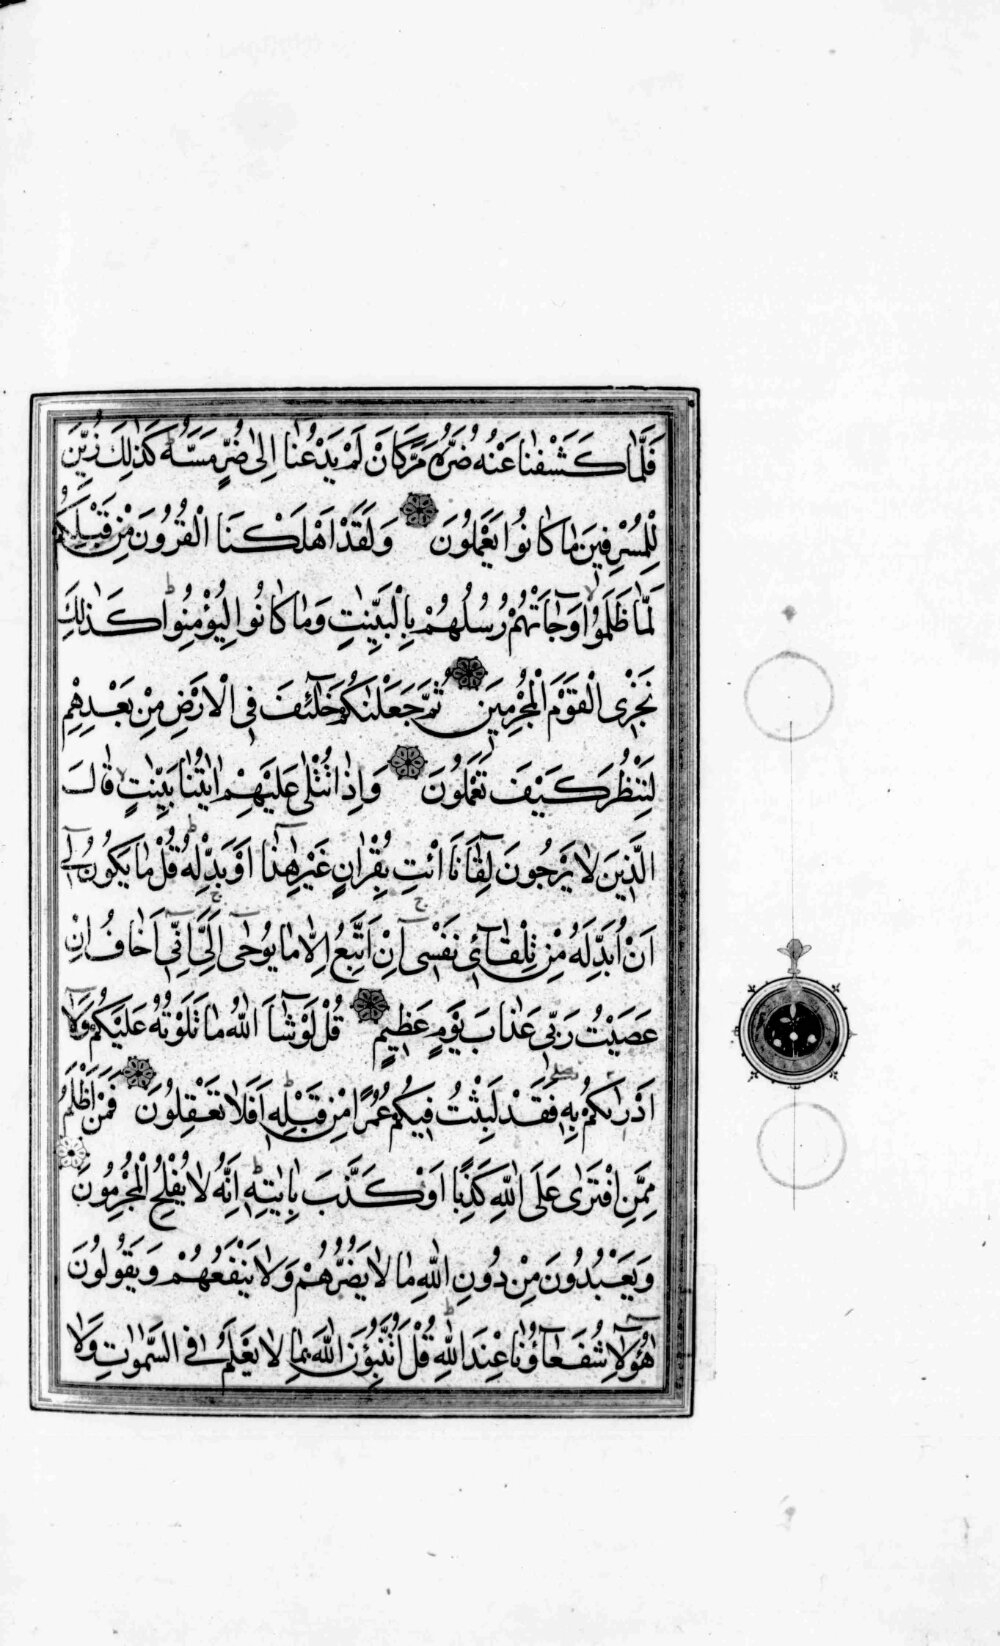 فَلَمَّا كَشَفْنَا عَنْهُ ضُرَّهُ مَرَّ كَانَ لَمْ يَدْعُنَا اِلٰى ضُرٍّ مَسَّهُ كَذٰلِكَ زُيِّنَ
لِلْمُسْرِفِينَ مَا كَانُوا يَعْمَلُونَ وَلَقَدْ اَهْلَكْنَا الْقُرُونَ مِنْ قَبْلِكُمْ
لَمَّا ظَلَمُوا وَجَاءَتْهُمْ رُسُلُهُمْ بِالْبَيِّنٰتِ وَمَا كَانُوا لِيُؤْمِنُوا كَذٰلِكَ
نَجْزِى الْقَوْمَ الْمُجْرِمِينَ ثُمَّ جَعَلْنٰكُمْ خَلٰٓئِفَ فِى الْاَرْضِ مِنْ بَعْدِهِمْ
لِنَنْظُرَ كَيْفَ تَعْمَلُونَ وَاِذَا تُتْلٰى عَلَيْهِمْ اٰيَاتُنَا بَيِّنٰتٍ قَالَ
الَّذِينَ لَا يَرْجُونَ لِقَاءَنَا ائْتِ بِقُرْاٰنٍ غَيْرِ هٰذَا اَوْ بَدِّلْهُ قُلْ مَا يَكُونُ لِى
اَنْ اُبَدِّلَهُ مِنْ تِلْقَائِ نَفْسِى اِنْ اَتَّبِعُ اِلَّا مَا يُوحٰى اِلَىَّ اِنِّى اَخَافُ اِنْ
عَصَيْتُ رَبِّى عَذَابَ يَوْمٍ عَظِيمٍ قُلْ لَوْ شَاءَ اللّٰهُ مَا تَلَوْتُهُ عَلَيْكُمْ وَلَا
اَدْرٰىكُمْ بِهِ فَقَدْ لَبِثْتُ فِيكُمْ عُمُرًا مِنْ قَبْلِهِ اَفَلَا تَعْقِلُونَ فَمَنْ اَظْلَمُ
مِمَّنِ افْتَرٰى عَلَى اللّٰهِ كَذِبًا اَوْ كَذَّبَ بِاٰيٰتِهِ اِنَّهُ لَا يُفْلِحُ الْمُجْرِمُونَ
وَيَعْبُدُونَ مِنْ دُونِ اللّٰهِ مَا لَا يَضُرُّهُمْ وَلَا يَنْفَعُهُمْ وَيَقُولُونَ
هٰؤُلَاءِ شُفَعَاؤُنَا عِنْدَ اللّٰهِ قُلْ اَتُنَبِّؤُنَ اللّٰهَ بِمَا لَا يَعْلَمُ فِى السَّمٰوَاتِ وَلَا